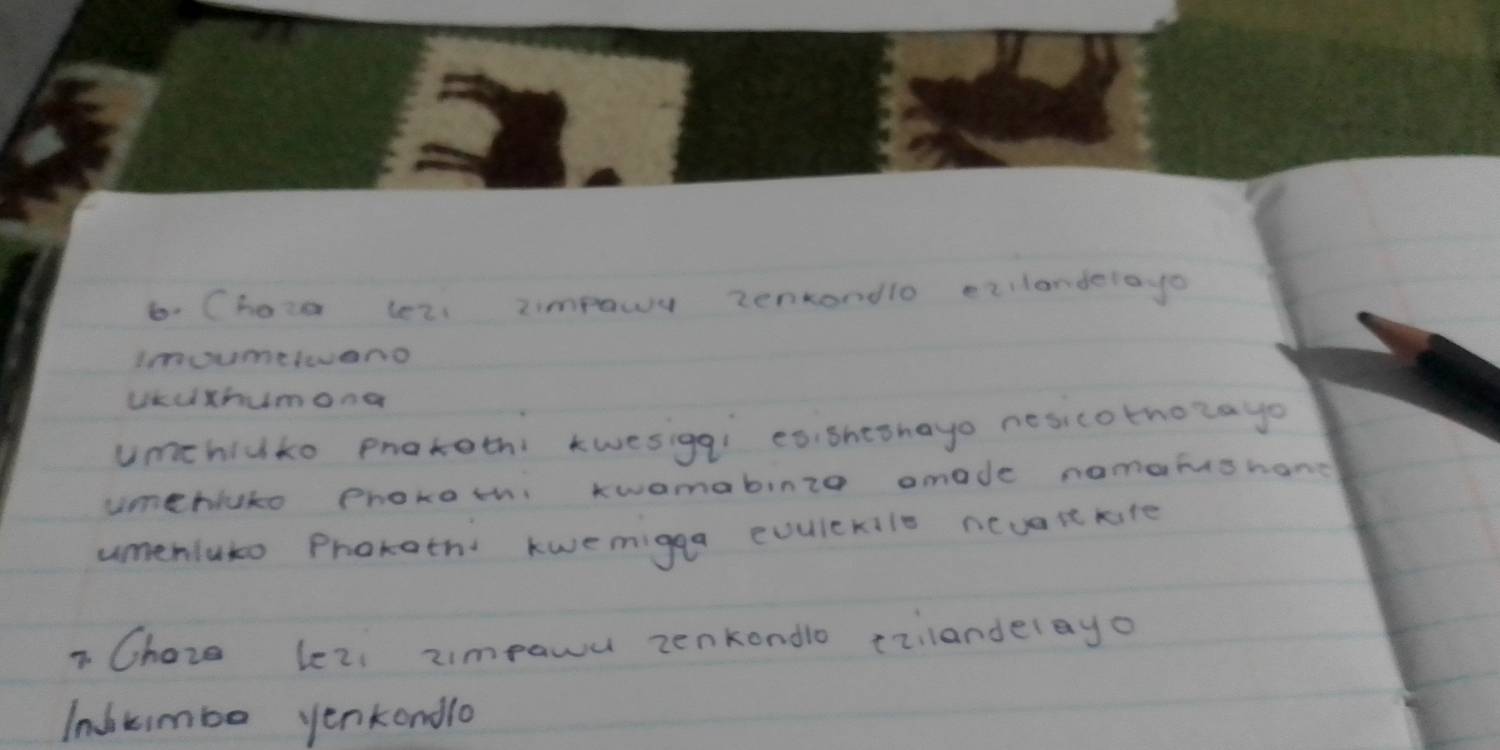 6. Choza lezi zimpawu zenkondlo ezilandelayo
Imvumelwano
Ukuxhumana
Umehluko phakathi kwesigqi esisheshayo nesicothozayo
umehluko phakathi kwamabinza amade namafushane
umehluko Phakathi kwemigqa evulekile nevalekile
7. Choza lezi zimpawu zenkondlo ezilandelayo
Indikimba yenkondlo